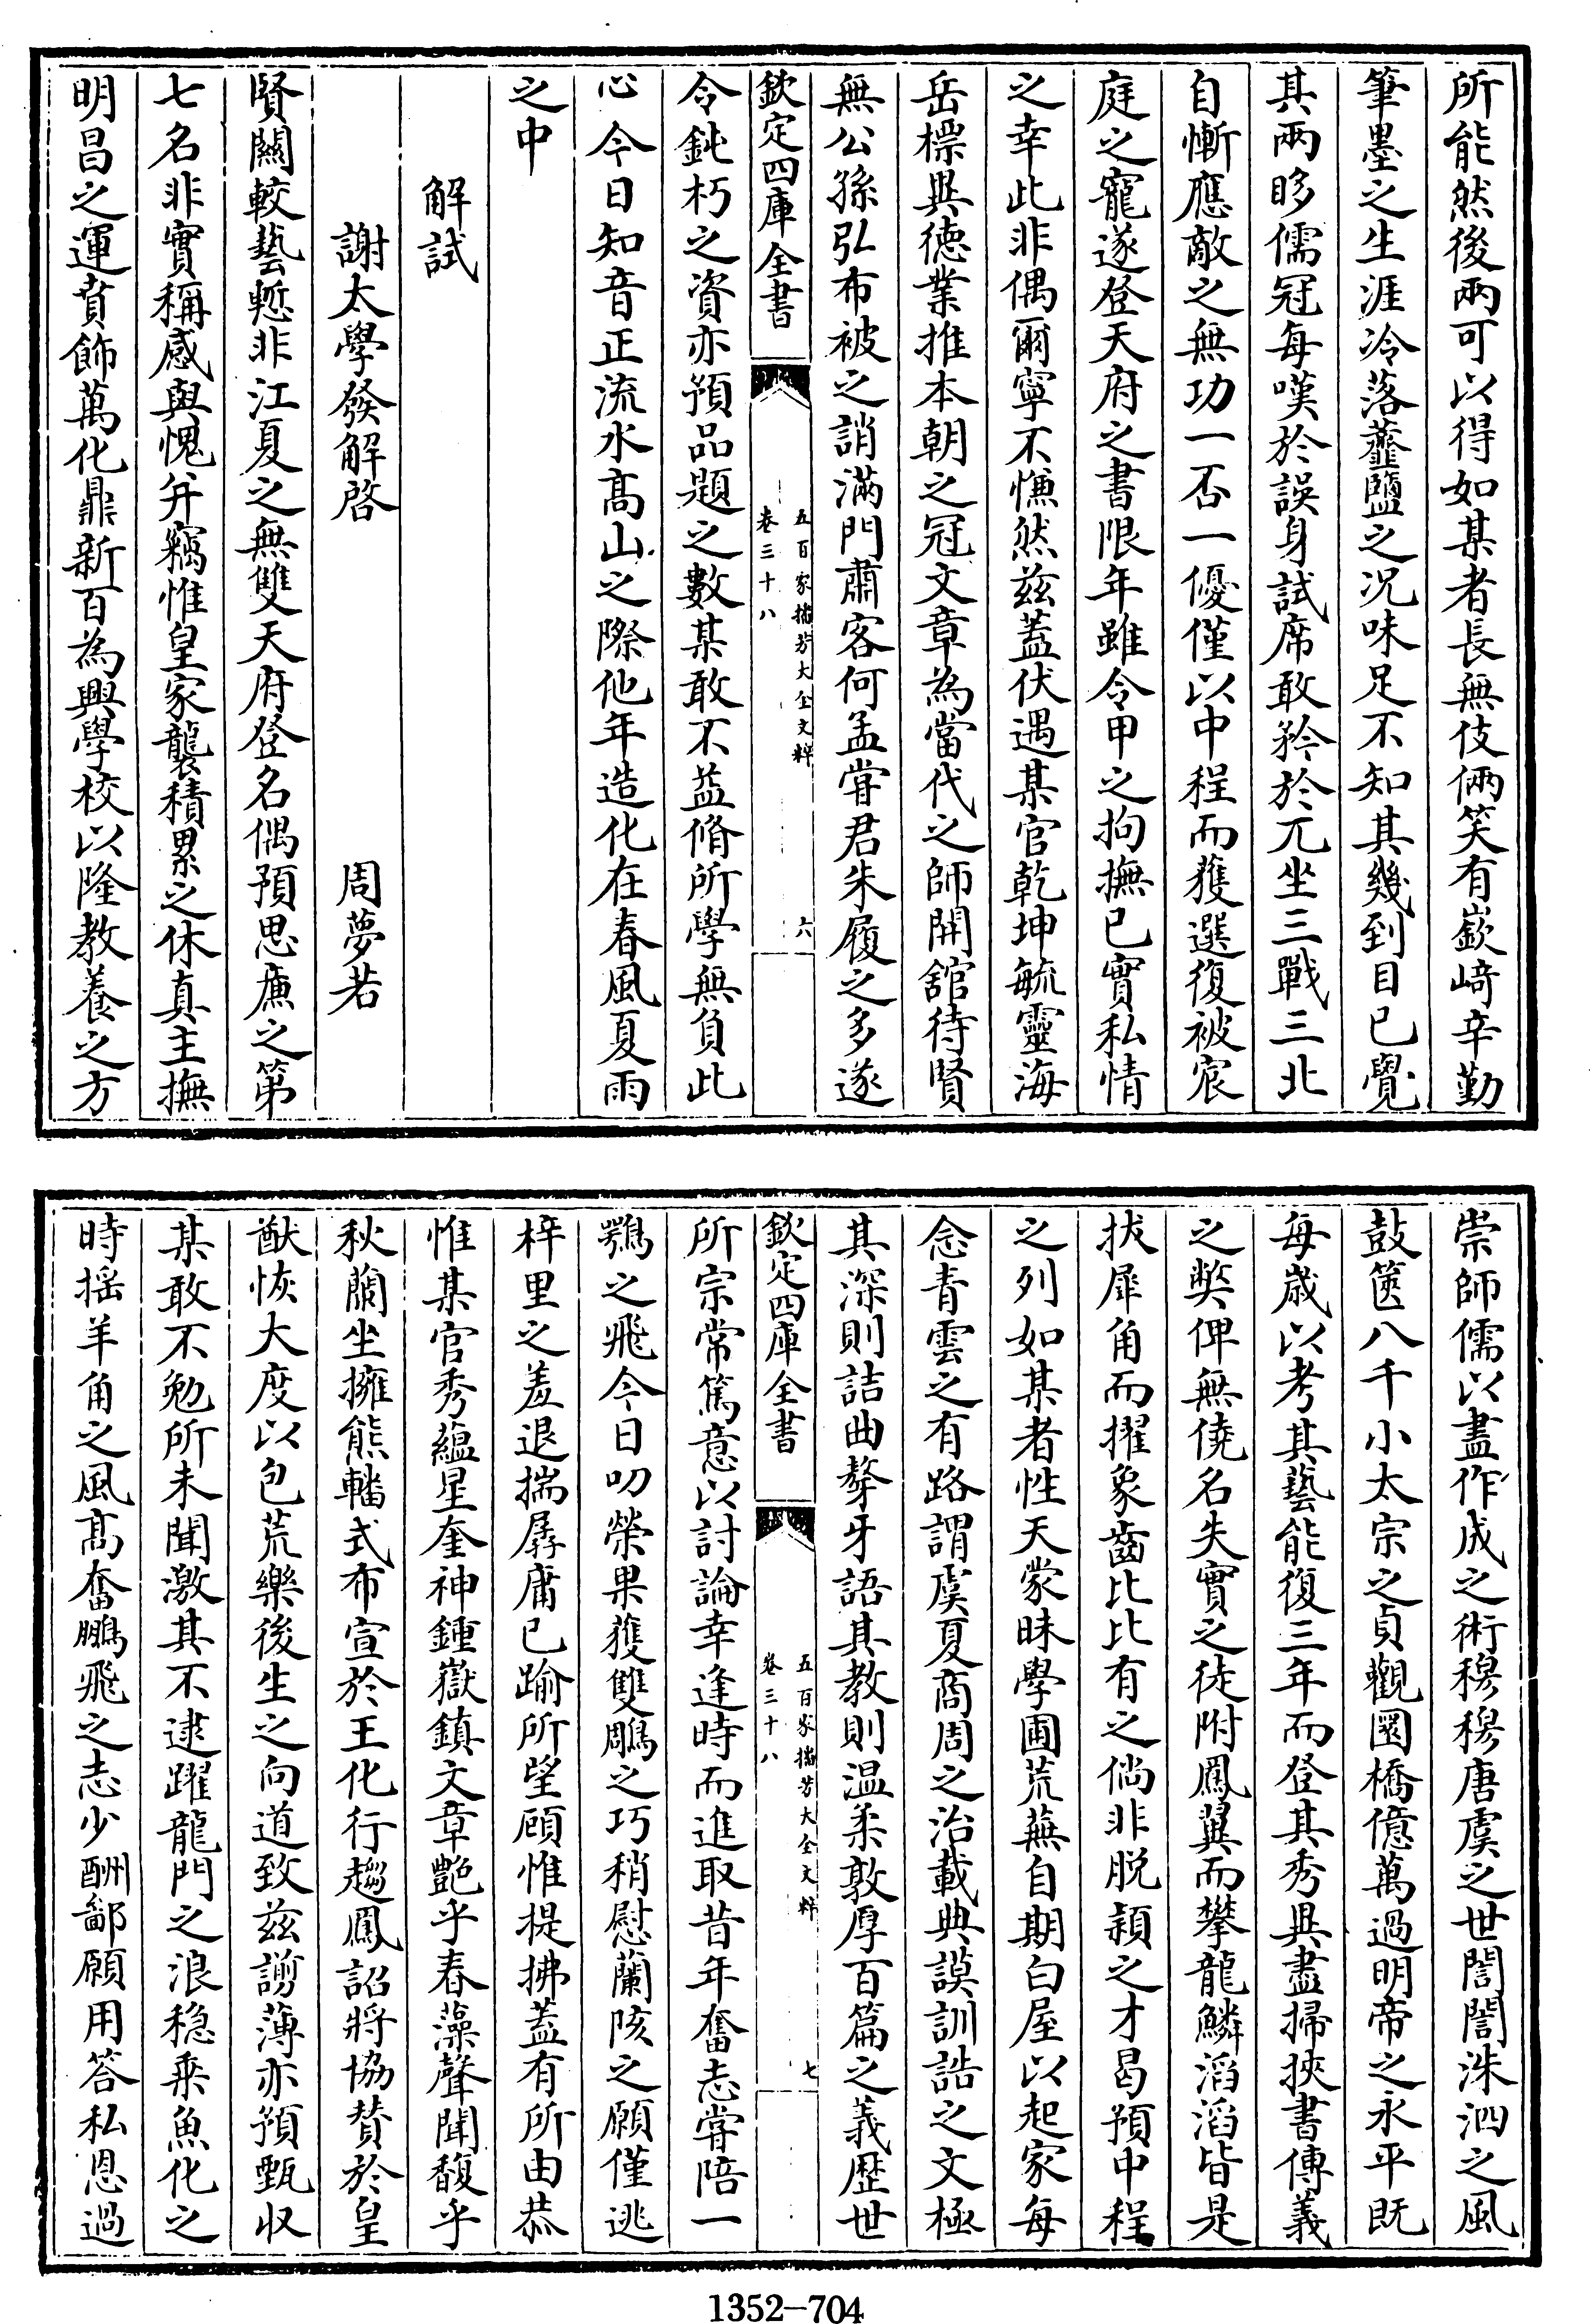 所能然後兩可以得如某者長無伎倆笑有嶔﨑辛勤
筆墨之生涯冷落虀鹽之况味足不知其幾到目已覺
其兩眵儒冠每嘆於誤身試席敢矜於兀坐三戰三北
自慚應敵之無功一否一優僅以中程而獲選復被宸
庭之寵遂登天府之書限年雖令甲之拘撫已實私情
之幸此非偶爾寧不慊然兹蓋伏遇某官乾坤毓靈海
岳標異徳業推本朝之冠文章為當代之師開舘待賢
無公孫弘布被之誚滿門肅客何孟甞君朱履之多遂
欽定四庫全書
五百家播芳大全文粹
卷三十八
六
令鈍朽之資亦預品題之數某敢不益脩所學無負此
心今日知音正流水髙山之際他年造化在春風夏雨
之中
解試
謝太學發解啓
周夢若
賢關較藝慙非江夏之無雙天府登名偶預思㢘之第
七名非實稱感與愧并竊惟皇家襲積累之休真主撫
明昌之運賁飾萬化鼎新百為興學校以隆教養之方
崇師儒以盡作成之術穆穆唐虞之世誾誾洙泗之風
鼓篋八千小太宗之貞觀圜橋億萬過明帝之永平既
每歳以考其藝能復三年而登其秀異盡掃挾書傳義
之獘俾無僥名失實之徒附鳳翼而攀龍鱗滔滔皆是
拔犀角而擢象齒比比有之倘非脱頴之才曷預中程
之列如某者性天蒙昧學圃荒蕪自期白屋以起家每
念青雲之有路謂虞夏商周之治載典謨訓誥之文極
其深則詰曲聱牙語其教則温柔敦厚百篇之義歴世
欽定四庫全書
五百家播芳大全文粹
卷三十八
七
所宗常篤意以討論幸逢時而進取昔年奮志甞陪一
鶚之飛今日叨榮果獲雙鵰之巧稍慰蘭陔之願僅逃
梓里之羞退揣孱庸已踰所望顧惟提拂蓋有所由恭
惟某官秀藴星奎神鍾嶽鎮文章艶乎春藻聲聞馥乎
秋蘭坐擁熊轓式布宣於王化行趨鳳詔將協賛於皇
猷恢大度以包荒樂後生之向道致兹謭薄亦預甄収
某敢不勉所未聞激其不逮躍龍門之浪穏乗魚化之
時揺羊角之風髙奮鵬飛之志少酬鄙願用答私恩過
1352-704